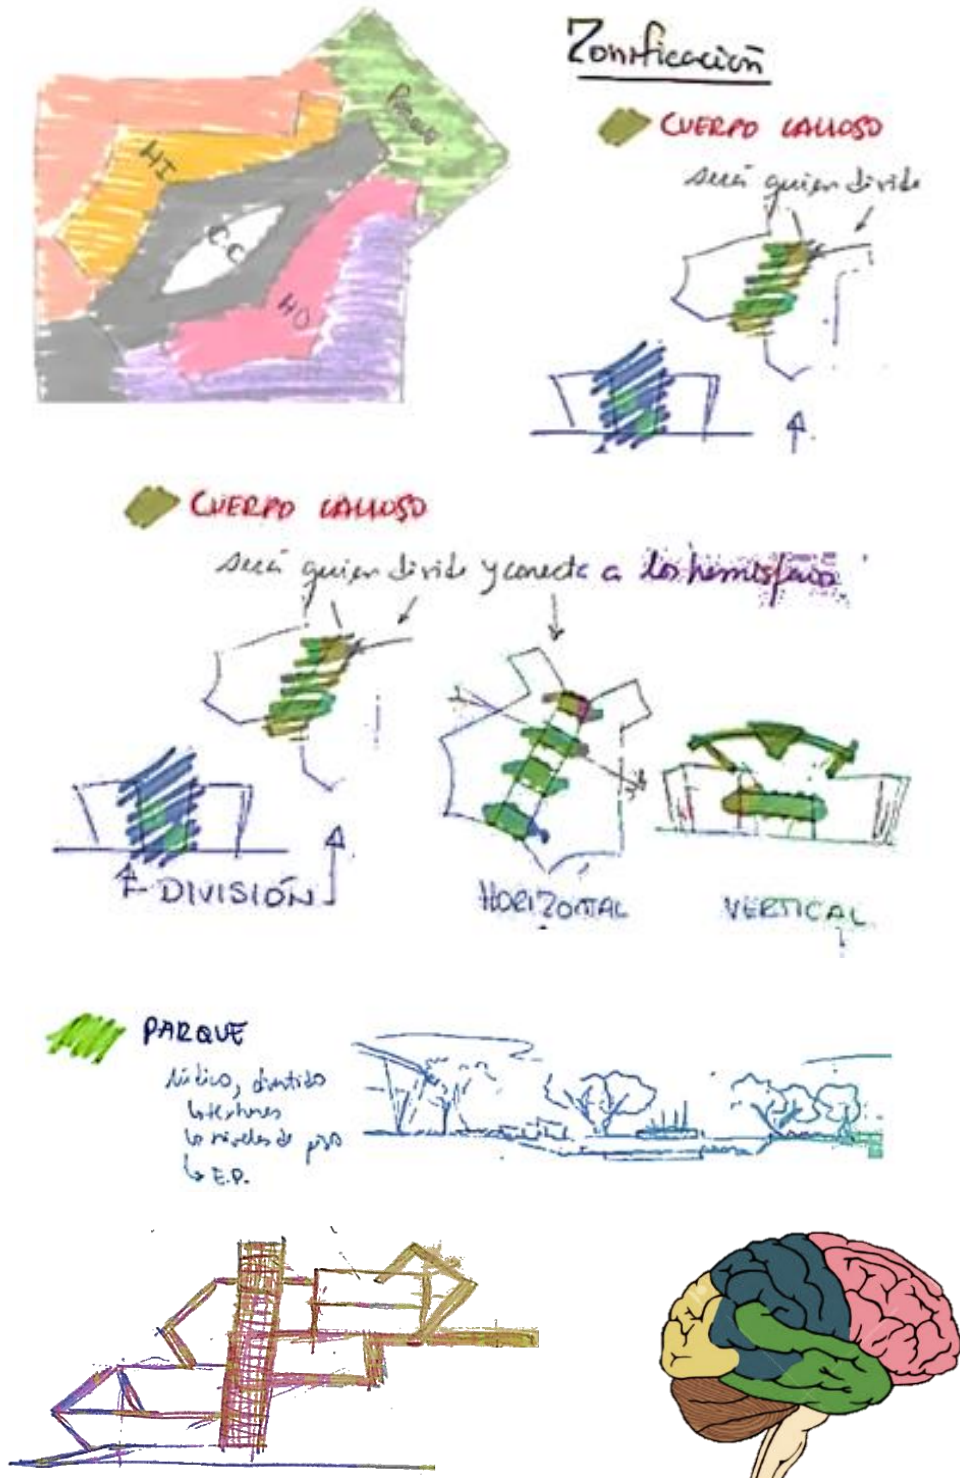 Zonificación
Parque
HI
C.C
HD
CUERPO CALLOSO
será quien divide
CUERPO CALLOSO
será quien divide y conecta a los hemisferios
DIVISIÓN
HORIZONTAL
VERTICAL
PARQUE
lúdico, divertido
↳ texturas
↳ niveles de piso
↳ E.P.